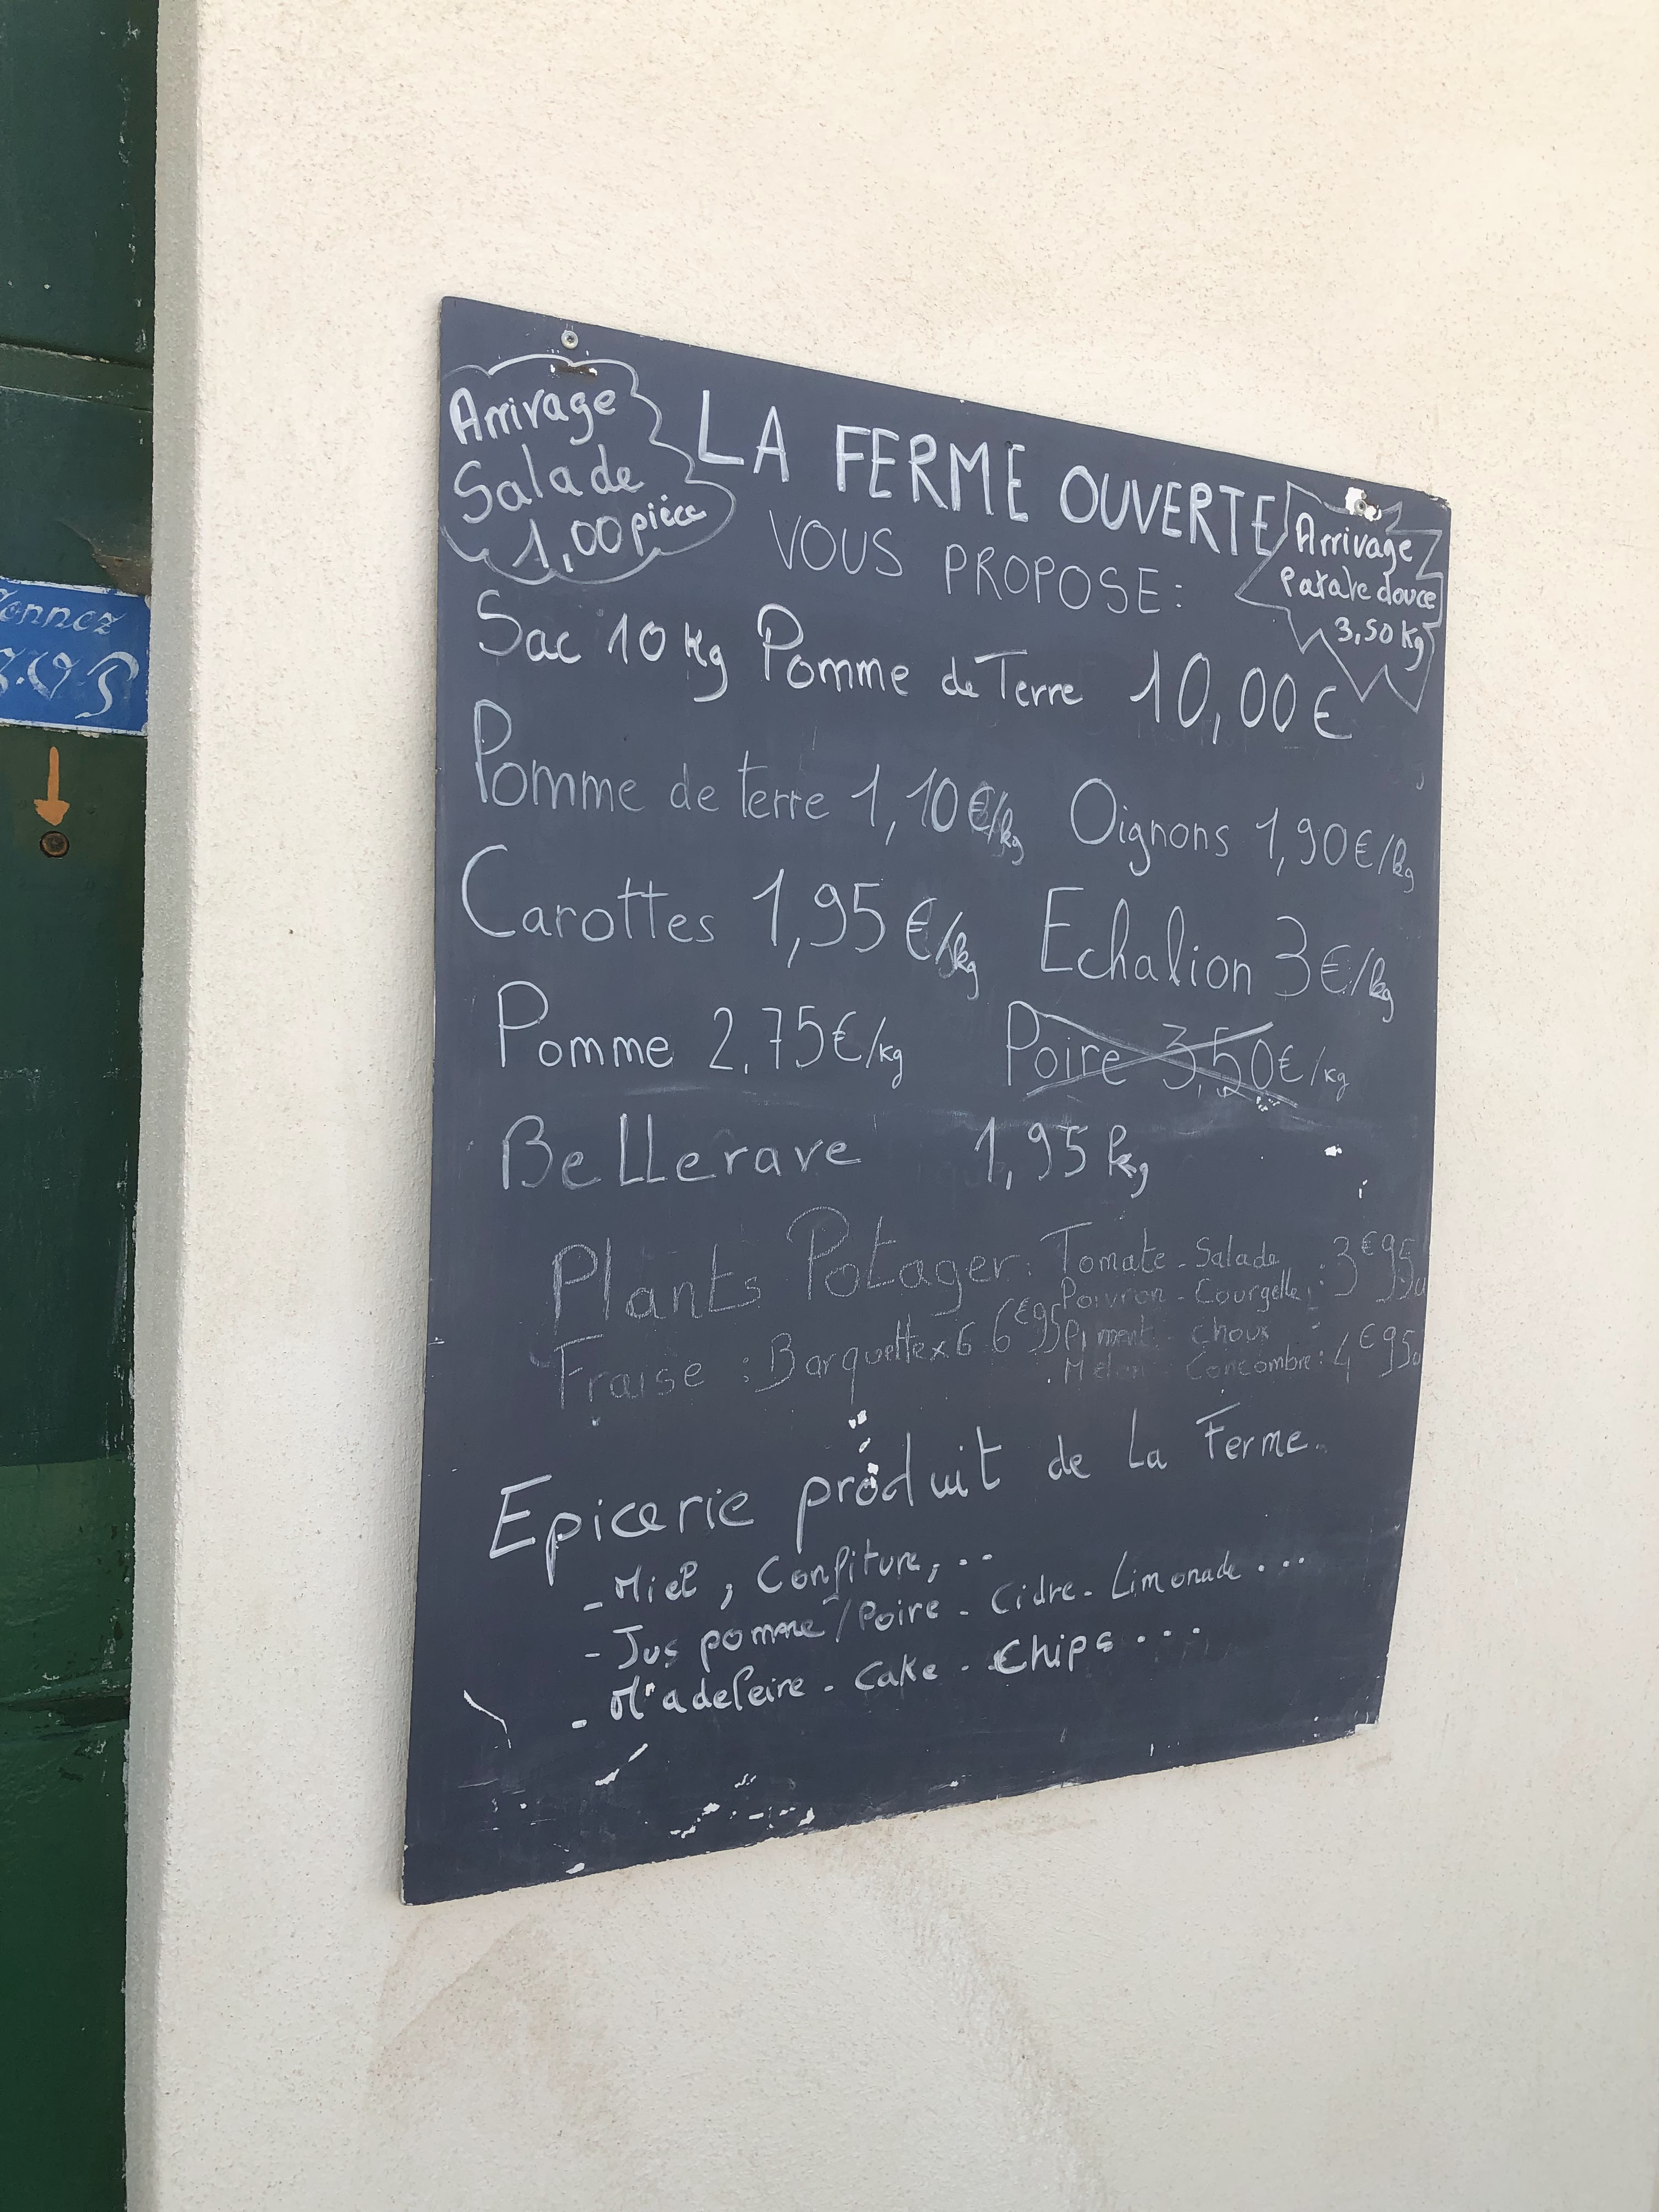 Arrivage
Salade
1,00 pièce
LA FERME OUVERTE
VOUS PROPOSE:
Arrivage
Patate douce
3,50 kg
Sac 10 kg Pomme de Terre 10,00 €
Pomme de terre 1,10 €/kg Oignons 1,90 €/kg
Carottes 1,95 €/kg Echalion 3 €/kg
Pomme 2,75 €/kg Poire 3,50 €/kg
Betterave 1,95 kg
Plants Potager: Tomate - Salade
Poivron - Courgette : 3€95u
Fraise : Barquette x 6 6€95
Piment - choux
Melon - Concombre : 4€95u
Epicerie produit de La Ferme.
- Miel, Confiture, ...
- Jus pomme / Poire - Cidre - Limonade ...
- Madeleine - Cake - Chips ...
onnez
S.V.P